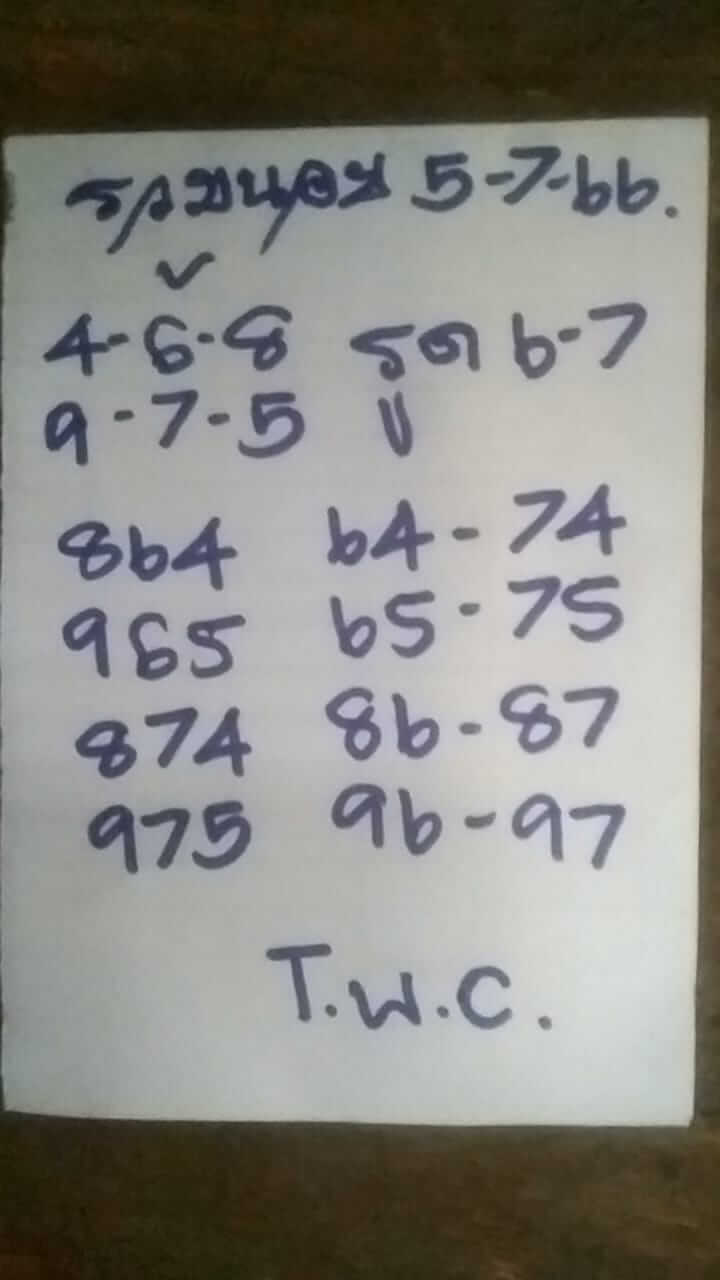 5-7-66.
4-6-8 รูด 6-7
9-7-5
864 64-74
965 65-75
874 86-87
975 96-97
T.W.C.